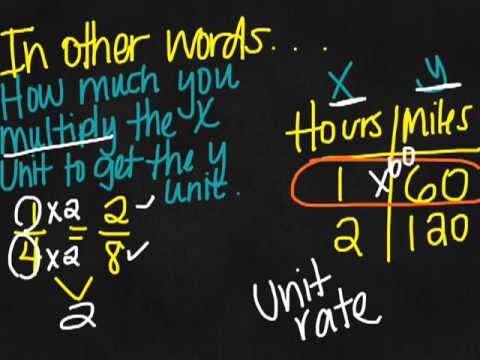 In other words....
How much you
multiply the x
Unit to get the y
unit.
1 x2 = 2
4 x2 8
2
x y
Hours Miles
1 x60 60
2 120
unit
rate